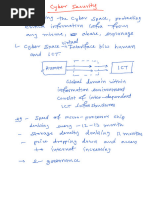 Cyber Security
the Cyber Space, protecting
critical information from
any misuse, or abuse, espionage
1- Cyber Space → Interface btw human
and ICT
HUMAN
ICT
Global domain within
information environment
consist of inter-dependent
ICT infrastructures
- Speed of micro-processor chip
doubling every ~12-18 month
- storage density doubling 12 months
- price dropping down and users
to internet increasing
- E-governance